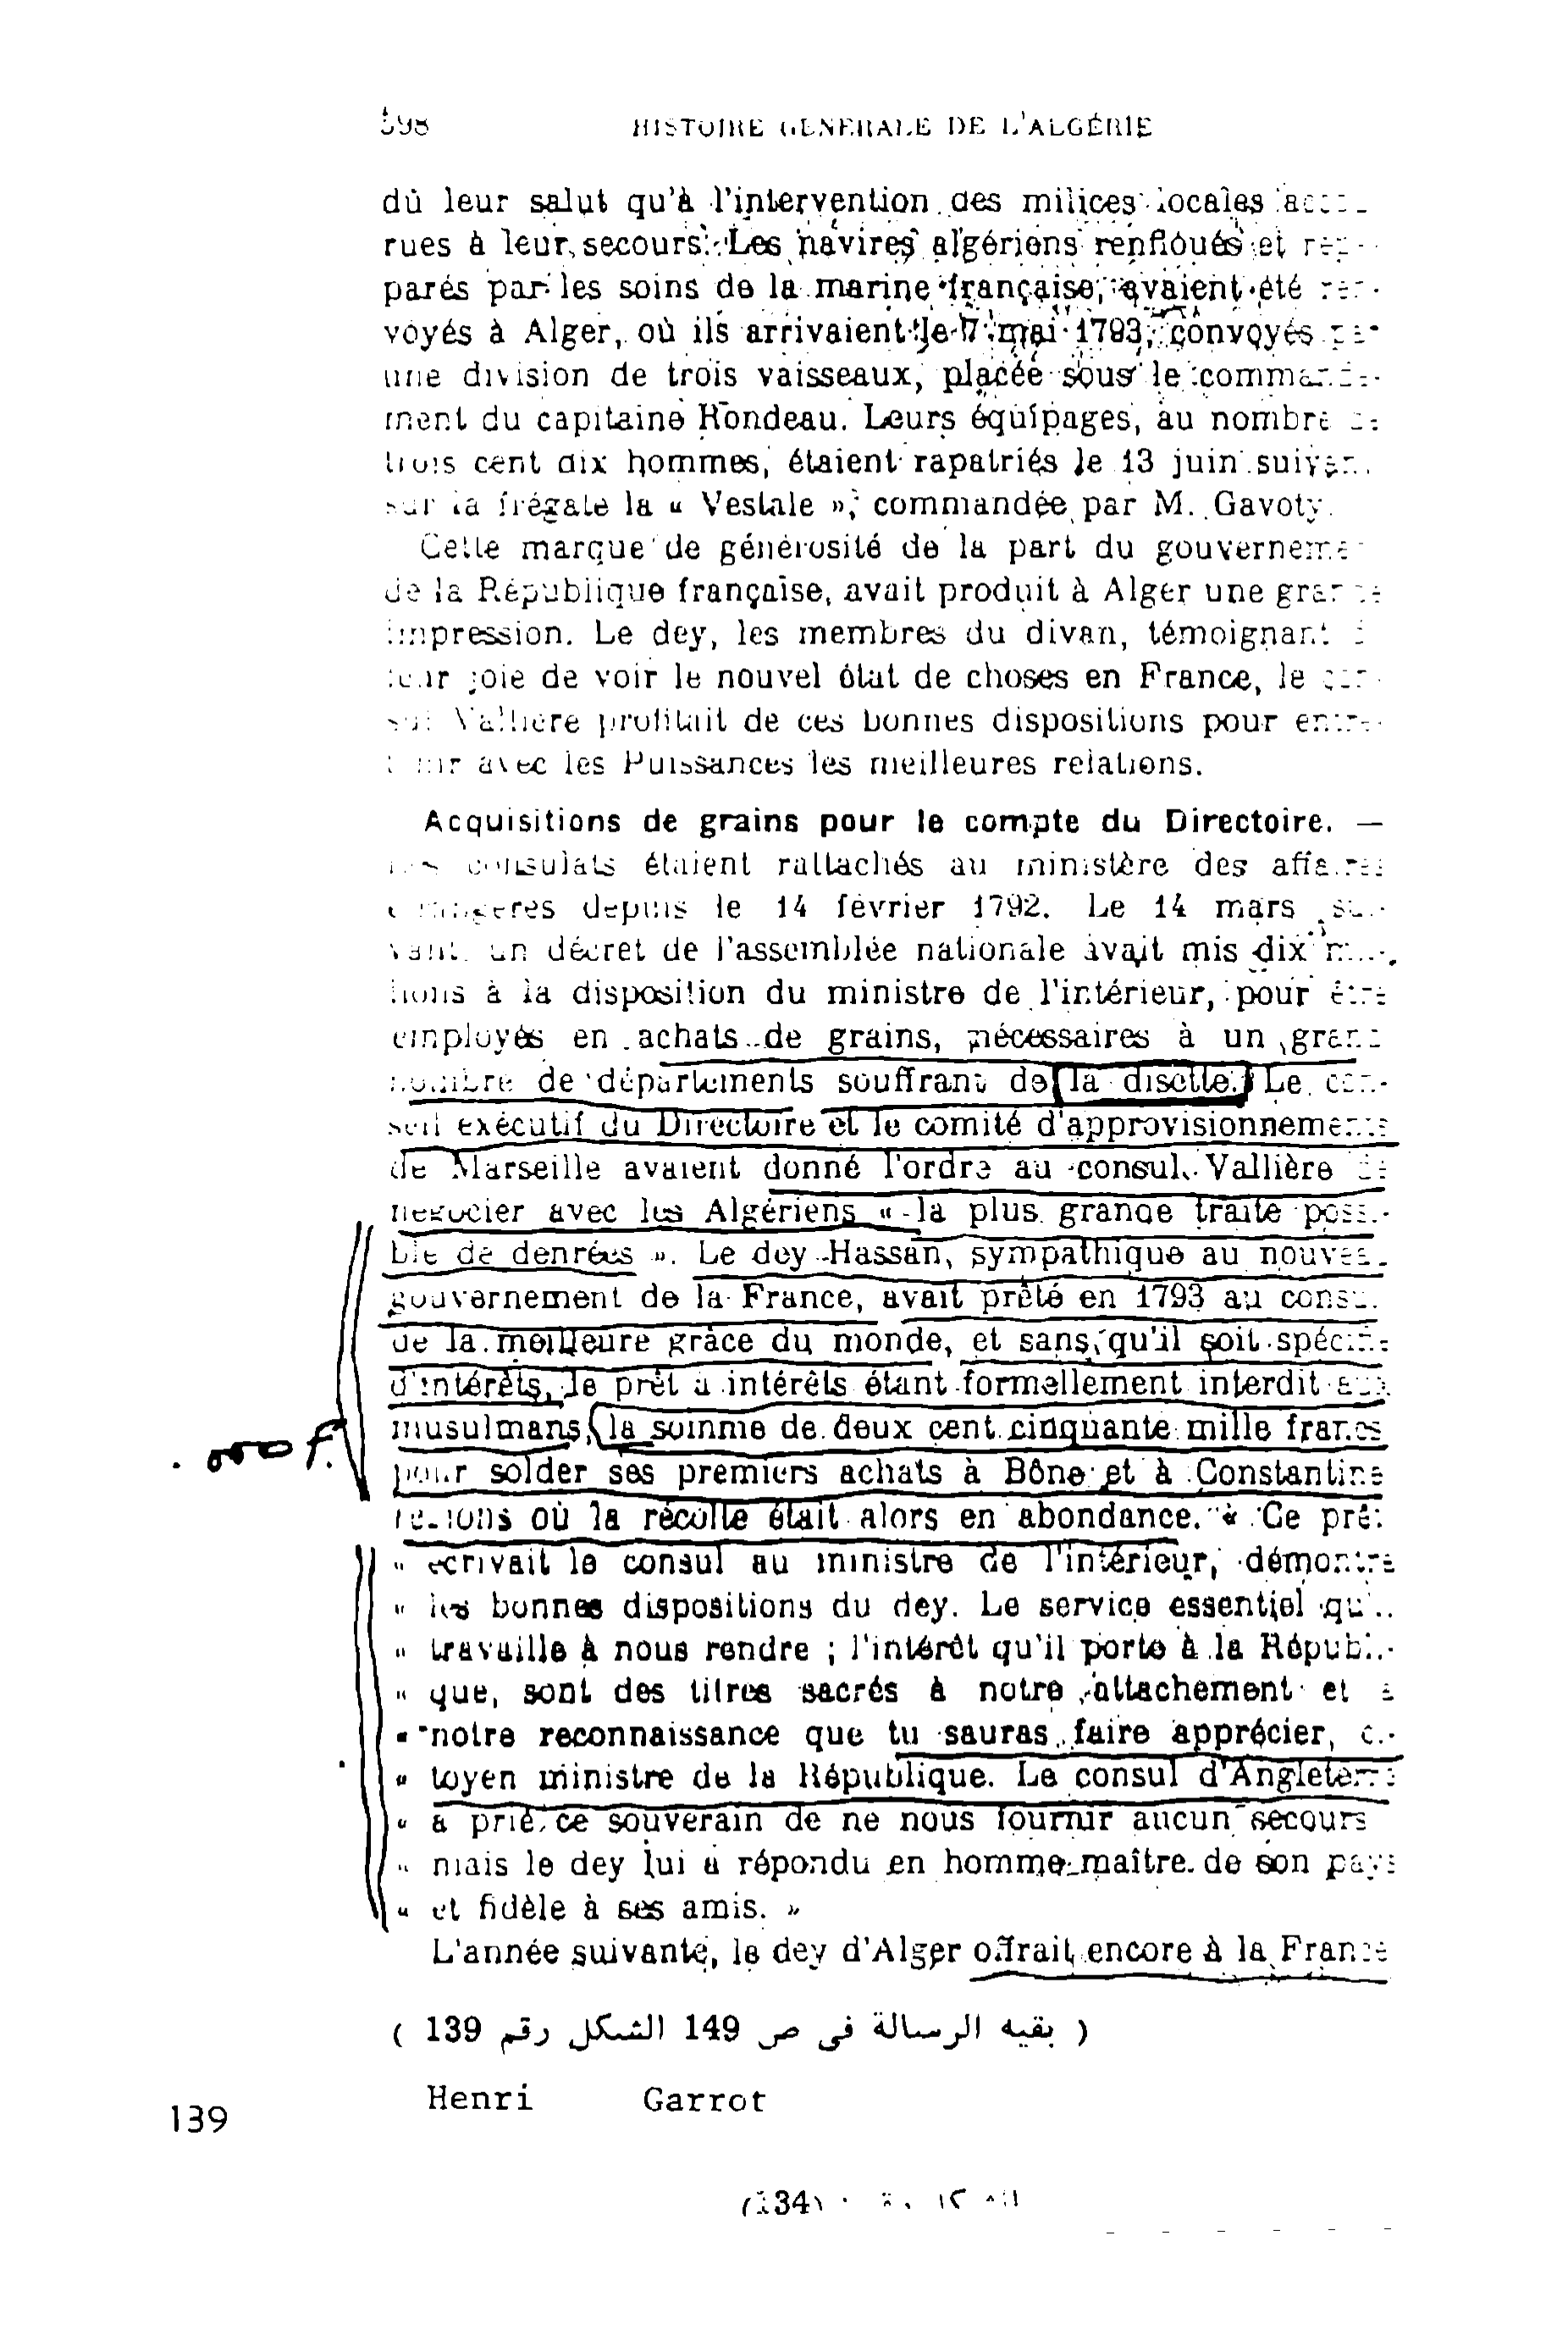 598 HISTOIRE GÉNÉRALE DE L'ALGÉRIE
dû leur salut qu'à l'intervention des milices locales
rues à leur secours. Les navires algériens renfloués et
parés par les soins de la marine française, avaient été
voyés à Alger, où ils arrivaient le 17 mai 1793, convoyés
une division de trois vaisseaux, placée sous le
ment du capitaine Rondeau. Leurs équipages, au nombre
trois cent dix hommes, étaient rapatriés le 13 juin
sur la frégate la « Vestale », commandée par M. Gavoty.
Cette marque de générosité de la part du
de la République française, avait produit à Alger une
impression. Le dey, les membres du divan, témoignant
leur joie de voir le nouvel état de choses en France, le
Vallière profitait de ces bonnes dispositions pour
avec les Puissances les meilleures relations.
Acquisitions de grains pour le compte du Directoire. —
consulats étaient rattachés au ministère des
depuis le 14 février 1792. Le 14 mars
un décret de l'assemblée nationale avait mis dix
lions à la disposition du ministre de l'intérieur, pour être
employés en achats de grains, nécessaires à un grand
nombre de départements souffrant de la disette. Le
seil exécutif du Directoire et le comité d'approvisionnements
de Marseille avaient donné l'ordre au consul Vallière de
négocier avec les Algériens « la plus grande traite
ble de denrées ». Le dey Hassan, sympathique au
gouvernement de la France, avait prêté en 1793 au
de la meilleure grâce du monde, et sans qu'il soit
d'intérêts, le prêt à intérêts étant formellement interdit aux
musulmans, la somme de deux cent cinquante mille francs
000 f.
pour solder ses premiers achats à Bône et à Constantine
où la récolte était alors en abondance. « Ce prêt
« écrivait le consul au ministre de l'intérieur, démontre
« les bonnes dispositions du dey. Le service essentiel
« travaille à nous rendre ; l'intérêt qu'il porte à la Républi-
« que, sont des titres sacrés à notre attachement et à
« notre reconnaissance que tu sauras faire apprécier, ci-
« toyen ministre de la République. Le consul d'Angleterre
« a prié ce souverain de ne nous fournir aucun secours
« mais le dey lui a répondu en homme maître de son pays
« et fidèle à ses amis. »
L'année suivante, le dey d'Alger offrait encore à la France
( بقيه الرسالة فى ص 149 الشكل رقم 139 )
Henri Garrot
139
(134)